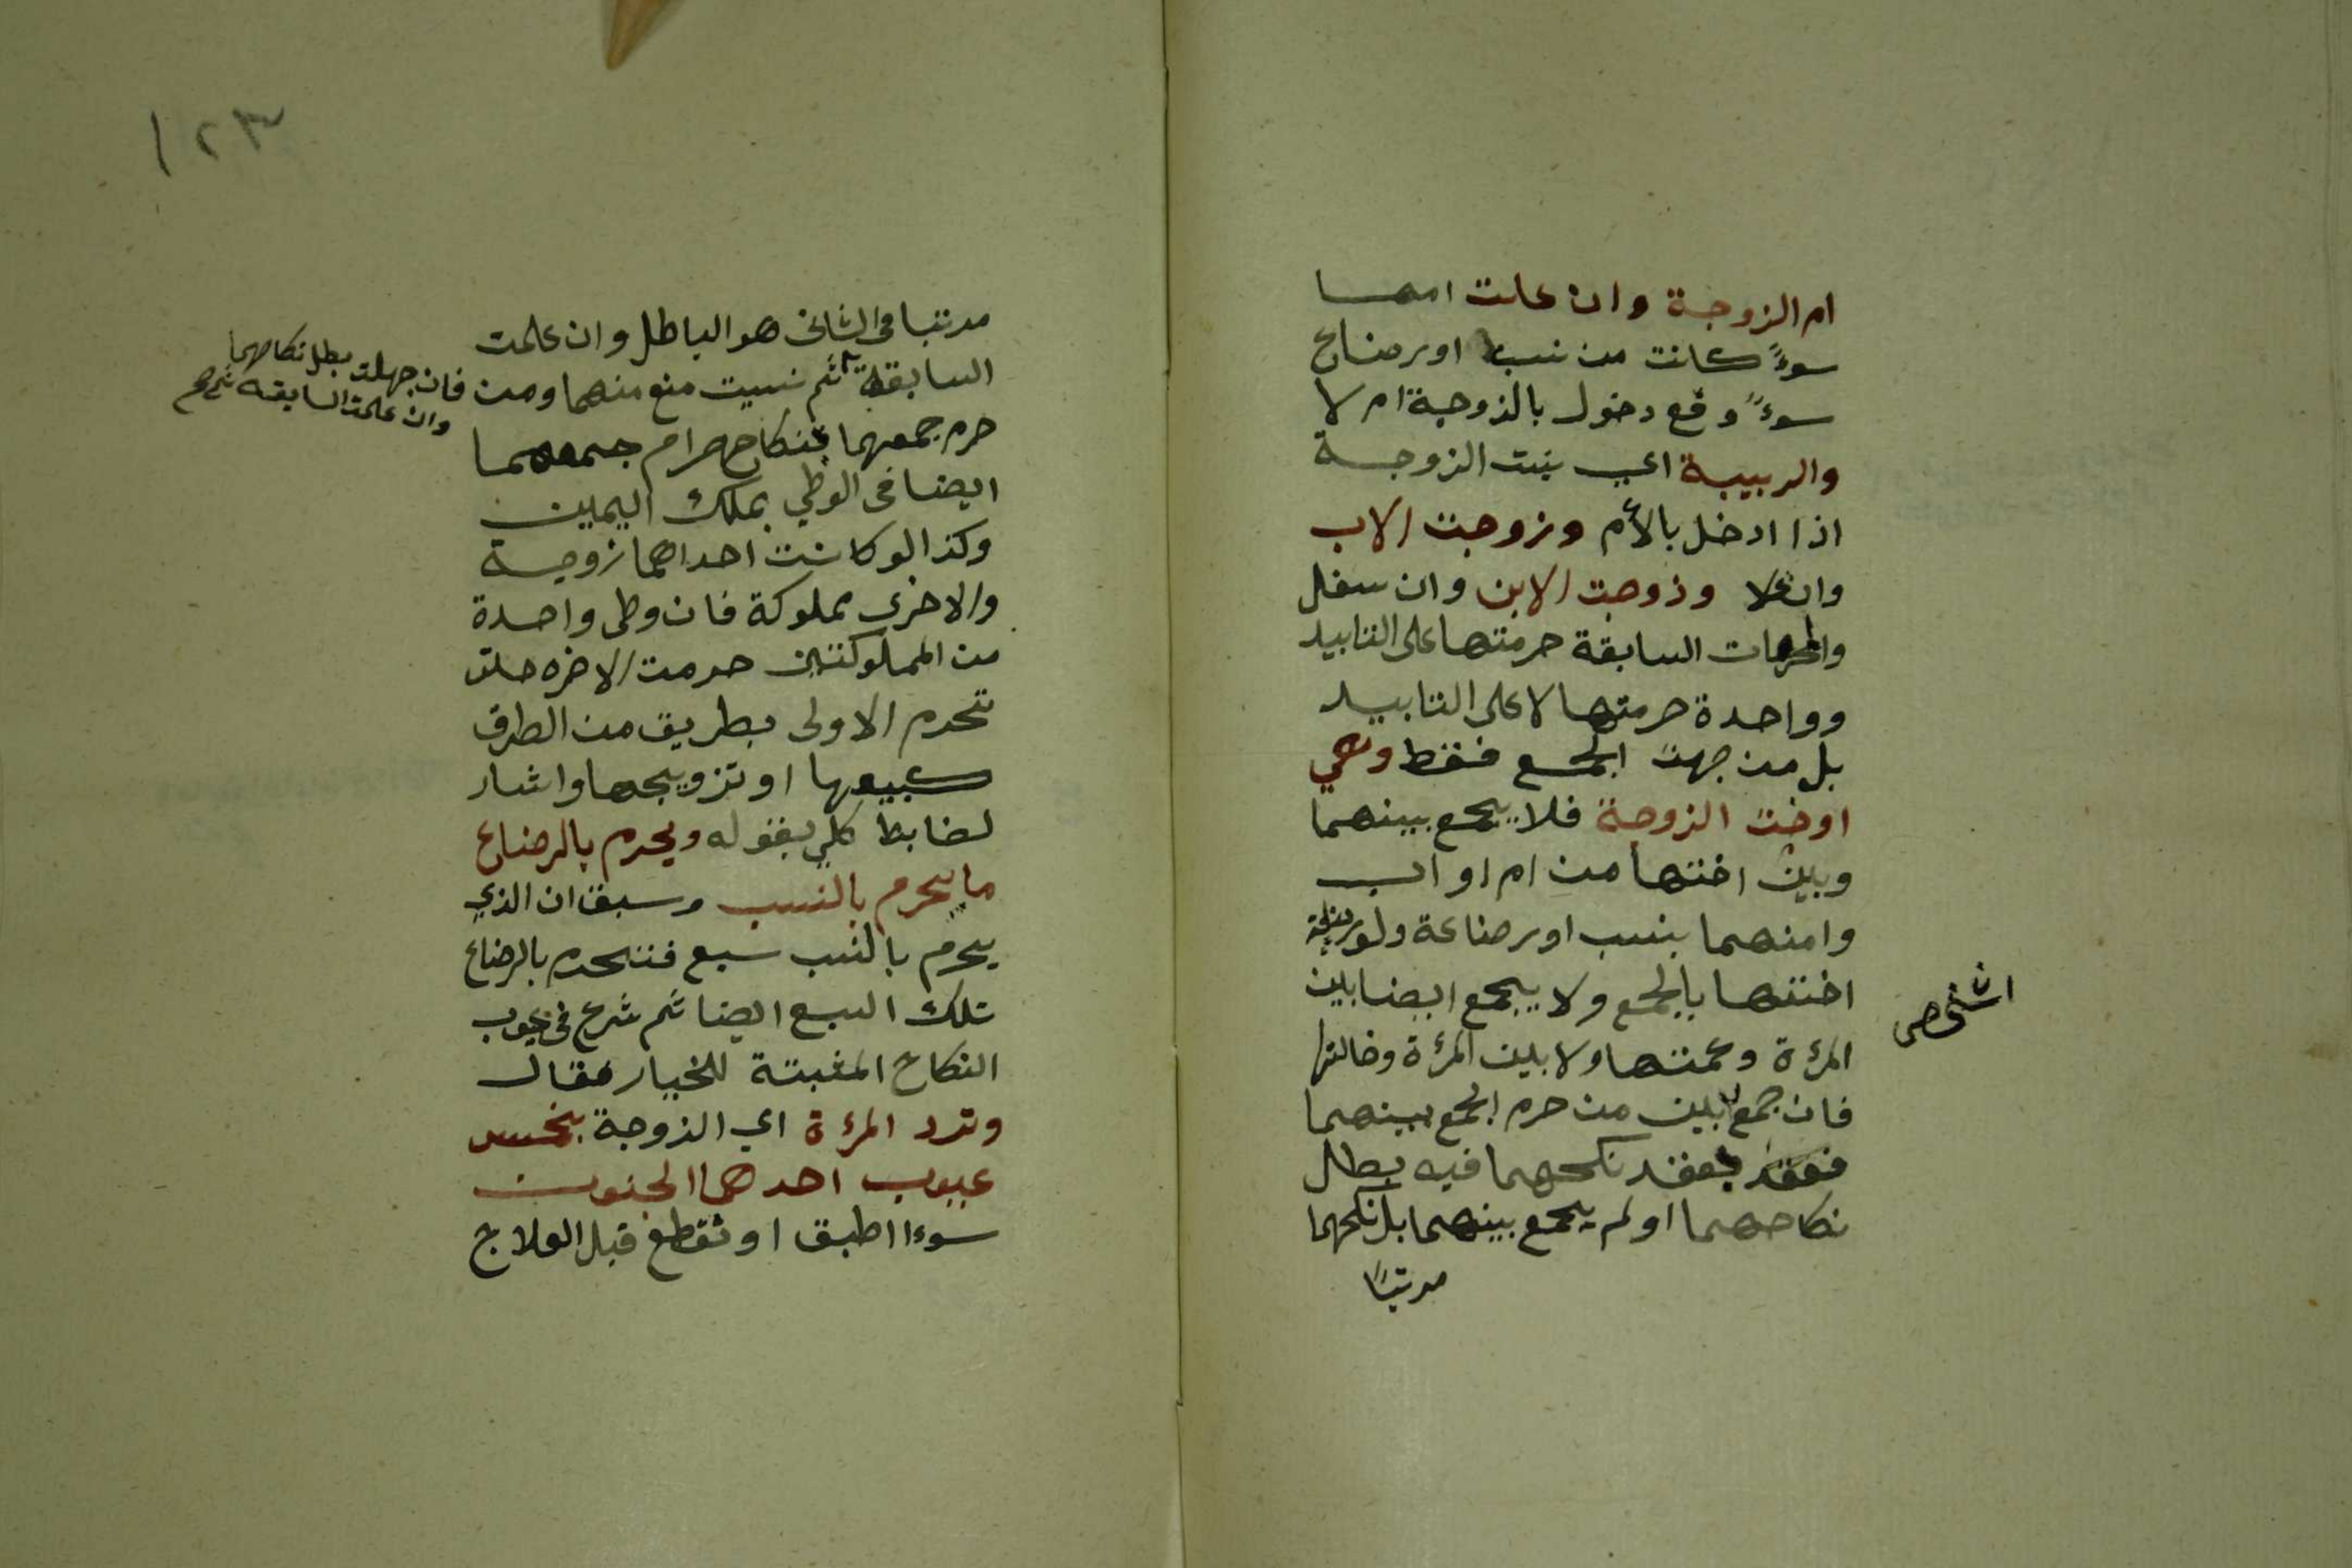 ام الزوجة وان علت امها
سوءً كانت من نسب او رضاع
سوءً وقع دخول بالزوجة ام لا
والربيبة اي بنت الزوجة
اذا ادخل بالأم وزوجت الاب
وان علا وذوجت الابن وان سفل
والمحرمات السابقة حرمتها على التابيد
وواحدة حرمتها لا على التابيد
بل من جهت الجمع فقط وهي
اوخت الزوجة فلا يجمع بينهما
وبين اختها من ام او اب
وامنهما بنسب او رضاعة ولو رضية
اختها بالجمع ولا يجمع ايضا بين
المرءة وعمتها ولا بين المرءة وخالتها
فان جمع بين من حرم الجمع بينهما
فعقد بعقد نكحهما فيه بطل
نكاحهما او لم يجمع بينهما بل نكحهما
مرتبًا
١٢٣
مرتبا في الثاني هو الباطل وان علمت
السابقة ثم نسيت منع منهما ومن
فان جهلت بطل نكاحهما
وان علمت السابقه ثم صح
حرم جمعهما بنكاح حرام جمعهما
ايضا في الوطي بملك اليمين
وكذا لو كانت احداهما زوجة
والاخرى مملوكة فان وطى واحدة
من المملوكتين حرمت الاخره حلت
تحرم الاولى بطريق من الطرق
كبيعها او تزويجها واشار
لضابط كلي بقوله ويحرم بالرضاع
ما يحرم بالنسب وسبق ان الذي
يحرم بالنسب سبع فتحرم بالرضاع
تلك السبع ايضا ثم شرع في عيوب
النكاح المثبتة للخيار فقال
وترد المرءة اي الزوجة بخمس
عيوب احدهما الجنون
سوءا اطبق او تقطع قبل العلاج